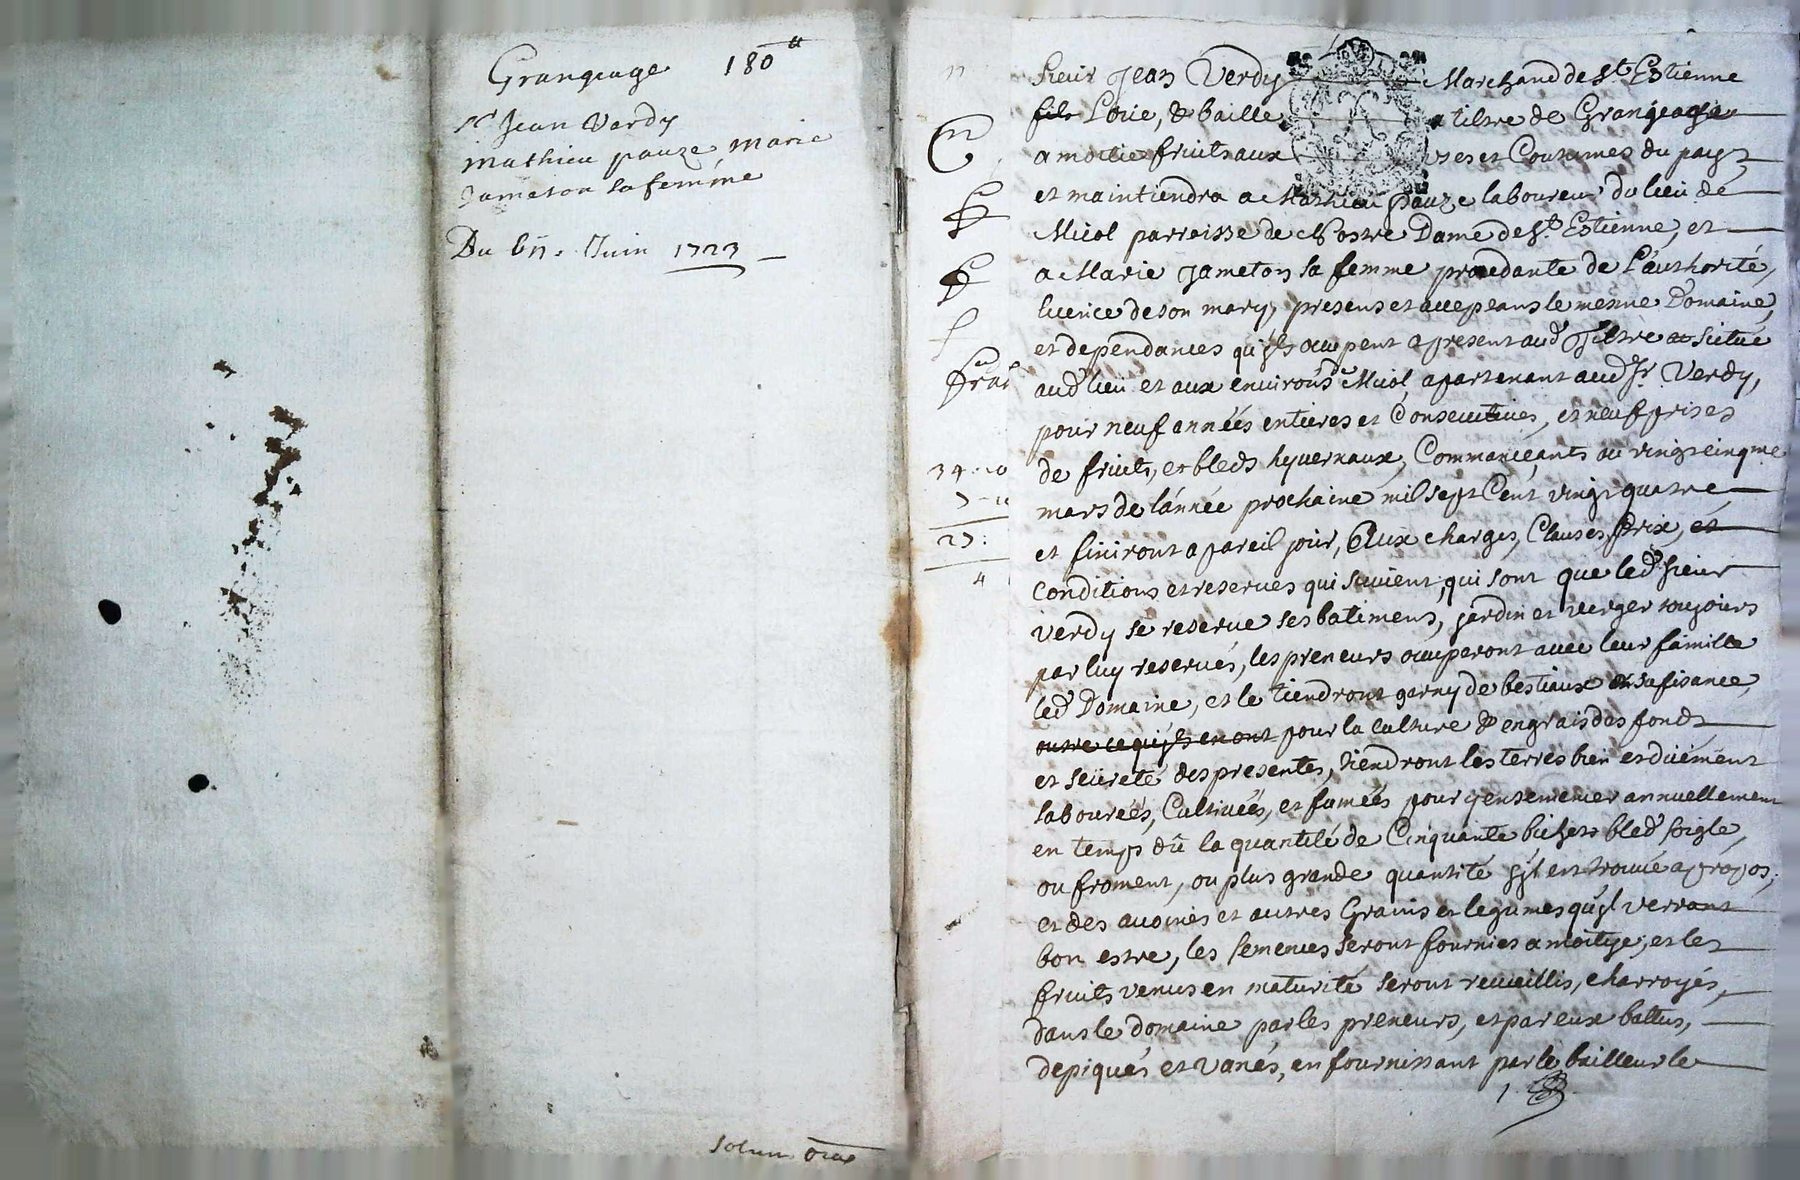 Grangeage 180
sr Jean Verdy
mathieu pauze marie
Jameton sa femme
Du Juin 1723
Sieur Jean Verdy Marchand de St Estienne
fils Loüe, & baille a tiltre de Grangeage
a moitie fruits aux uses et Coutumes du pays,
et maintiendra a Mathieu pauze laboureur du lieu de
Micol parroisse de Nostre Dame de St Estienne, et
a Marie Jameton sa femme procedante de l'authorité,
licence de son mary, presens et acceptans le mesme Domaine,
et dependances qu'jls occupent apresent aud Tiltre situé
aud lieu et aux environs de Micol, apartenant aud Sr Verdy,
pour neuf années entieres et Consecutives, et neuf prises
de fruits, et bleds hyvernaux, Commançants au vingtcinqme
mars de l'année prochaine mil sept Cent vingt quatre
et finiront a pareil jour, Aux charges, Clauses, prix, et
conditions et reserves qui suivent, qui sont que led sieur
verdy se reserve ses batimens, jardin et verger toujours
par luy reservés, les preneurs occuperont avec leur famille
led Domaine, et le tiendront garny de bestiaux sufisance,
outre ce qu'jls en ont pour la culture & engrais des fonds
et seüreté des presentes, tiendront les terres bien et düement
labourées, Cultivées, et fumées pour y ensemencer annuellement
en temps dû la quantité de Cinquante bichets bled soigle,
ou froment, ou plus grande quantité s'jl est trouvé apropos;
et des avoines et autres Grains et legumes qu'jl verront
bon estre, les semences seront fournies a moitye, et les
fruits venus en maturité seront recueillis, charroyés,
dans le domaine par les preneurs, et par eux battus,
depiqués et vanés, en fournissant par le bailleur le
1